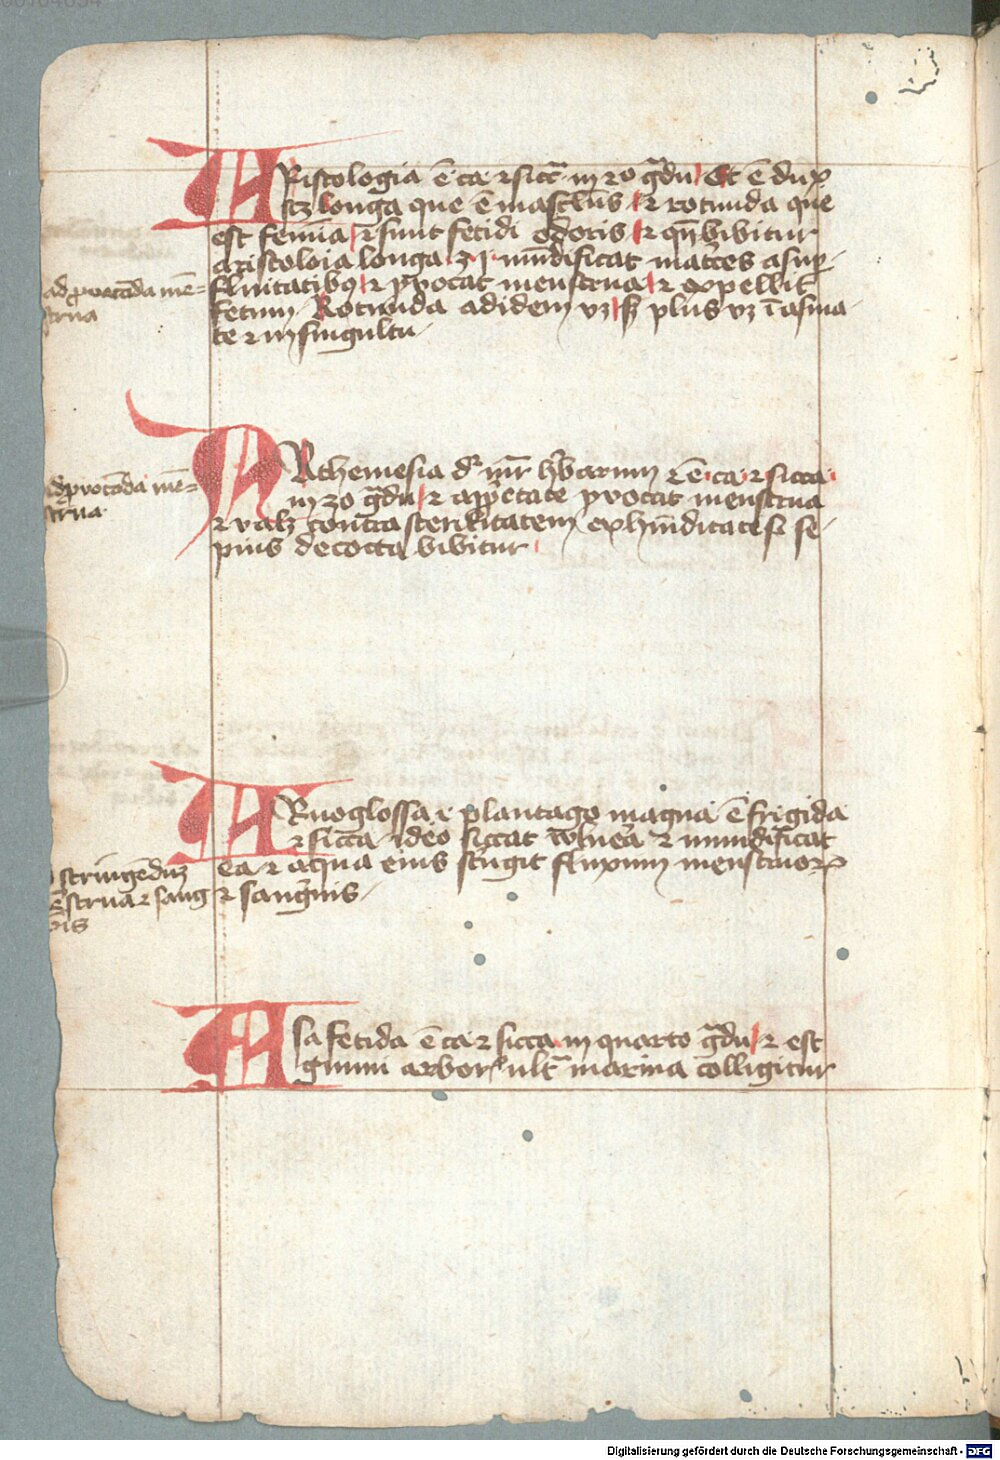 ARistologia ē ca ⁊ sicc̄ in 20 g̃du Et ē dupͯ
scꝫ longa que ē masclūs ⁊ rotunda que
est femīa ⁊ sunt fetidi odoris ⁊ qn̄ bibitur
aristoloia longa ʒ j mūdificat matͥces a suꝑ
fluitatibꝯ ⁊ ꝓvocat menstrua ⁊ expellit
fetum Rotunda ad idem vꝫ sꝫ plus vꝫ ī asma
te ⁊ in singultu
ad ꝓvocādа mē=
strua
ARthemesia dꝛ mr̄ h̾barum ⁊ ē ca ⁊ sicca
in 30 g̃du ⁊ ꝓvocat menstrua
⁊ valꝫ contra sterilitatem ex hūiditate si se
pius decocta bibitur
ad ꝓvocādа mē=
strua
ARnoglossa .i. plantago magna ē frigida
⁊ sicca ideo siccat vlnēa ⁊ mundificat
ea ⁊ aqua eius st̾ngit fluxum menstruoꝝ
⁊ sangͥnis
stringēduꝫ
mēstrua ⁊ sangͥ
nis
Asa fetida ē ca ⁊ sicca in quarto g̃du ⁊ est
gummi arborꝭ ult̃ marina colligitur
Digitalisierung gefördert durch die Deutsche Forschungsgemeinschaft - DFG